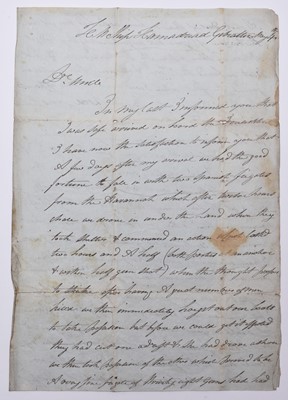 H M Ship Gibraltar
Dr Uncle
In my last I informed you that
I was safe around on board the
I have now the satisfaction to inform you that
A few days after my arrival we had the good
fortune to fall in with two Spanish frigates
from the Havannah which after twelve hours
chace we drove in under the Land when they
took shelter & commenced an action which lasted
two hours and A half (both parties
&
to strike after having A great number of men
we then immediately hoist out our boats
to take possession but before we could get
they had cut one adrift & she had drove ashore
we then took possession of the other which proved to be
A very fine frigate of thirty eight Guns had had